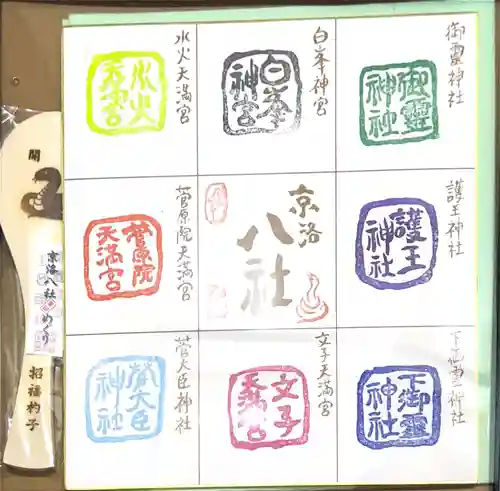 御靈神社
御靈神社
白峯神宮
白峯神宮
水火天満宮
水火天満宮
護王神社
護王神社
京洛
八社
菅原院天満宮
菅原院天満宮
下御霊神社
下御靈神社
文子天満宮
文子天満宮
菅大臣神社
菅大臣神社
開
京洛八社めぐり
招福杓子